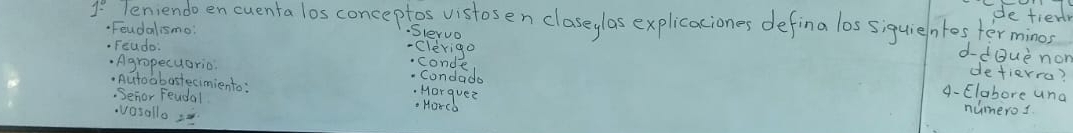 1° Teniendo en cuenta los conceptos vistos en clase y las explicaciones defina los siguientes terminos
•Feudalismo:
•Feudo:
•Agropecuario:
•Autoabastecimiento:
•Señor Feudal
•Vasallo
•Siervo
•Clérigo
•Conde
•Condado
•Marquez
•Marca
de tierr
d-¿Què non
de tierra?
4-Elabore una
número 1.